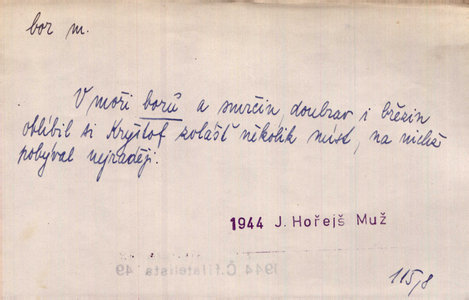 bor m.
V moři borů a smrčin, doubrav i březin
oblíbil si Kryštof zvlášť několik míst, na nichž
pobýval nejraději.
1944 J. Hořejš Muž
1944 Č. filatelista 49
115/8